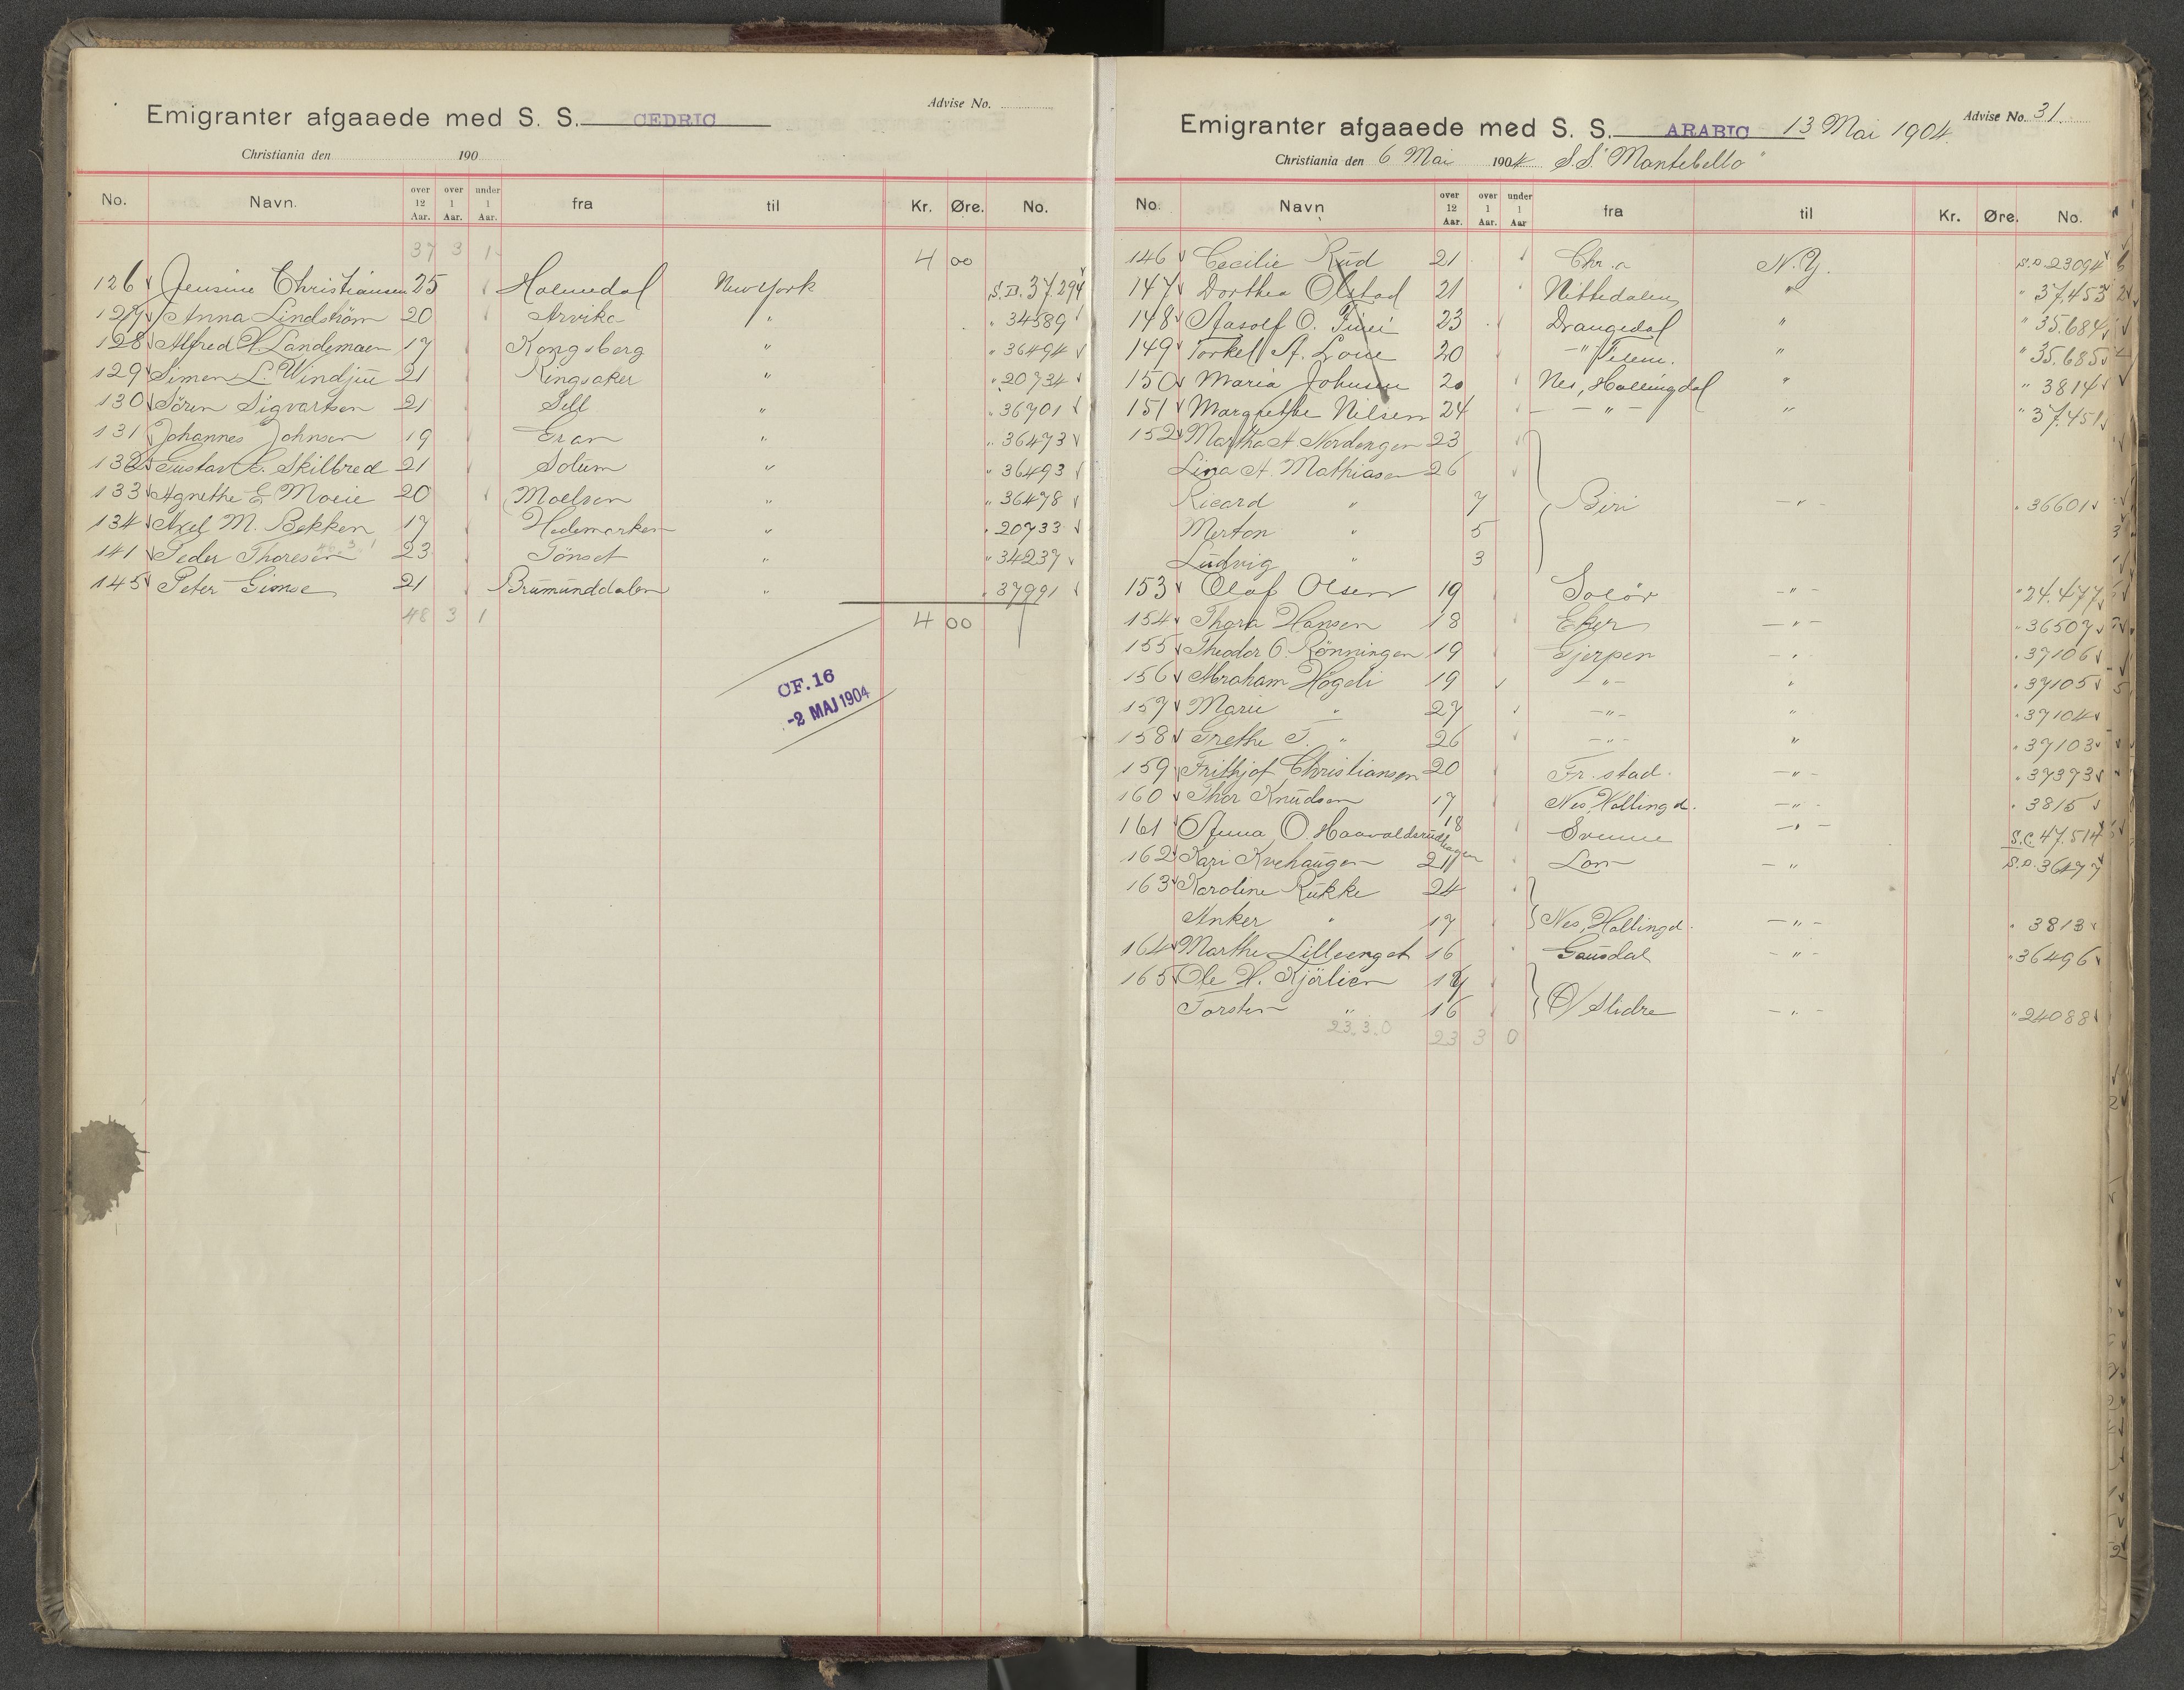 Advise No.
Emigranter afgaaede med S. S. CEDRIC
Christiania den 190
No. Navn. over 12 Aar. over 1 Aar. under 1 Aar. fra til Kr. Øre. No.
37 3 1 4 00
126 Jensine Christiansen 25 Holmedal New York S.D. 37.294
127 Anna Lindström 20 Arvika " " 34589
128 Alfred Landemaen 17 Kongsberg " " 36494
129 Simen L. Windjue 21 Ringsaker " " 20734
130 Sören Sigvartsen 21 Sell " " 36701
131 Johannes Johnsen 19 Gran " " 36473
132 Gustav Skilbred 21 Solum " " 36493
133 Agnethe E. Moeie 20 Moelven " " 36478
134 Axel M. Bekken 17 Hedemarken " " 20733
46.3.1
141 Peder Thoresen 23 Tönset " " 34237
145 Peter Gimse 21 Brumunddalen " " 37991
48 3 1 4 00
CF.16
-2 MAJ 1904
Advise No. 31.
Emigranter afgaaede med S. S. ARABIC 13 Mai 1904.
Christiania den 6 Mai 1904 S.S. "Montebello"
No. Navn over 12 Aar. over 1 Aar. under 1 Aar fra til Kr. Øre. No.
146 Cecilie Rud 21 Chr.a N.Y. S.D. 23094
147 Dorthea Olstad 21 Nittedalen " " 37.453
148 Aasolf O. 23 Drangedal " " 35.684
149 Torkel A. Lone 20 -"- Telem. " " 35.685
150 Maria Johnsen 20 Nes, Hallingdal " " 3814
151 Margrethe Nilsen 24 - " - " " 37.451
152 Martha A Nordengen 23
Lina A. Mathiasen 26
Ricard " 7 Biri - " - " 36601
Merton " 5
Ludvig " 3
153 Olaf Olsen 19 Solör - " - " 24.477
154 Thora Hansen 18 Eker - " - " 36507
155 Theodor O. Rönningen 19 Gjerpen - " " 37106
156 Abraham Högeli 19 - " - " " 37105
157 Marie " 27 - " - " " 37104
158 Grethe T. " 26 - " - " " 37103
159 Frithjof Christiansen 20 Fr.stad. - " - " 37373
160 Thor Knudsen 17 Nes, Hallingd. - " - " 3815
161 Anna O. Haavaldsrudhagen 18 Svenne - " - S.C. 47.514
162 Kari Kvehaugen 21 Lom - " S.D. 36477
163 Karoline Rukke 24
Anker " 17 Nes, Hallingd. - " - " 3813
164 Marthe Lilleenget 16 Gausdal - " - " 36496
165 Ole H. Kjörlien 18
Torsten " 16 Ö/Slidre - " - " 24088
23.3.0 23 3 0